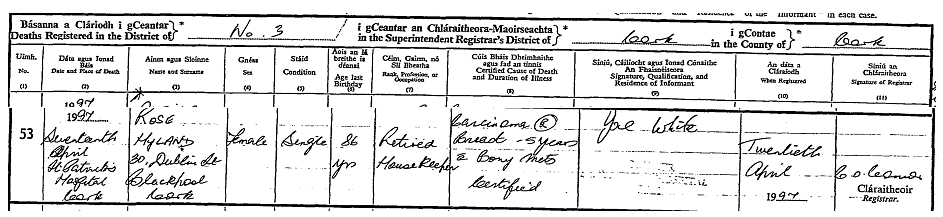 in each case.
Básanna a Cláríodh i gCeantar
Deaths Registered in the District of
No. 3
i gCeantar an Chláraitheora-Maoirseachta
in the Superintendent Registrar's District of
Cork
i gContae
in the County of
Cork
Uimh. No. (1)
Dáta agus Ionad Báis Date and Place of Death (2)
Ainm agus Sloinne Name and Surname (3)
Gnéas Sex (4)
Stáid Condition (5)
Aois an lá breithe is déanaí Age last Birthday (6)
Céim, Gairm, nó Slí Bheatha Rank, Profession, or Occupation (7)
Cúis Bháis Dheimhnithe agus fad an tinnis Certified Cause of Death and Duration of Illness (8)
Síniú, Cáilíocht agus Ionad Cónaithe An Fhaisnéiseora Signature, Qualification, and Residence of Informant (9)
An dáta a Cláraíodh When Registered (10)
Síniú an Chláraitheora Signature of Registrar (11)
53
1997
1997 Seventeenth April St Patricks Hospital Cork
Rose Hyland 30, Dublin St Blackpool Cork
Female
Single
86 yrs
Retired Housekeeper
Carcinoma Breast - 5 years Bony Mets Certified
White
Twentieth April 1997
Cláraitheoir Registrar.